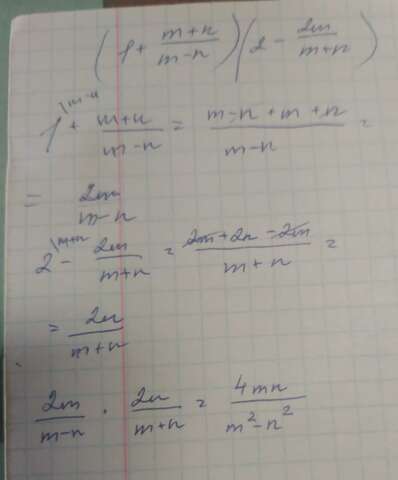 (1 + (m+n)/(m-n)) (2 - 2m/(m+n))
1\m-n + (m+n)/(m-n) = (m-n+m+n)/(m-n) =
= 2m/(m-n)
2\m+n - 2m/(m+n) = (2m+2n-2m)/(m+n) =
= 2n/(m+n)
2m/(m-n) · 2n/(m+n) = 4mn/(m²-n²)